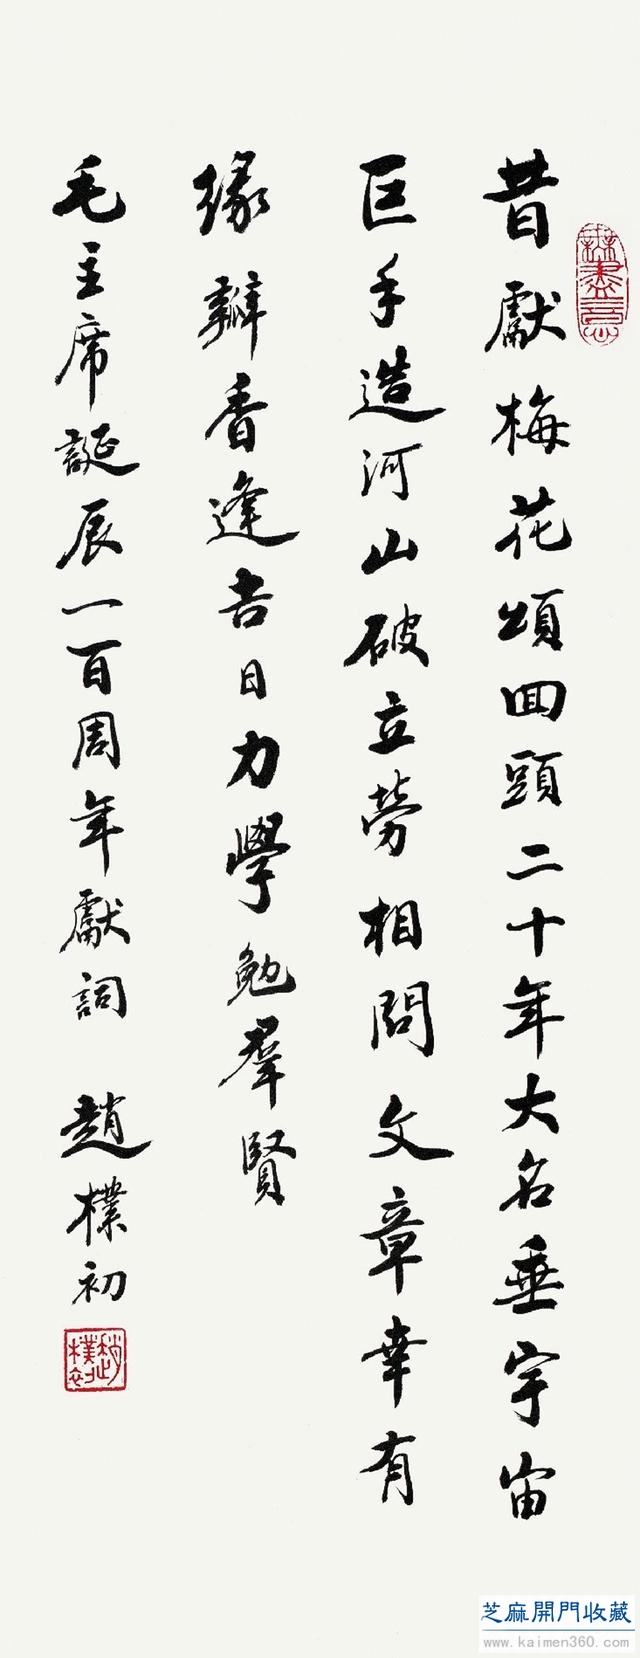 昔獻梅花頌回頭二十年大名垂宇宙
巨手造河山破立勞相問文章幸有
緣瓣香逢吉日力學勉羣賢
毛主席誕辰一百周年獻詞 趙樸初
無盡意
趙樸初
芝麻開門收藏
www.kaimen360.com